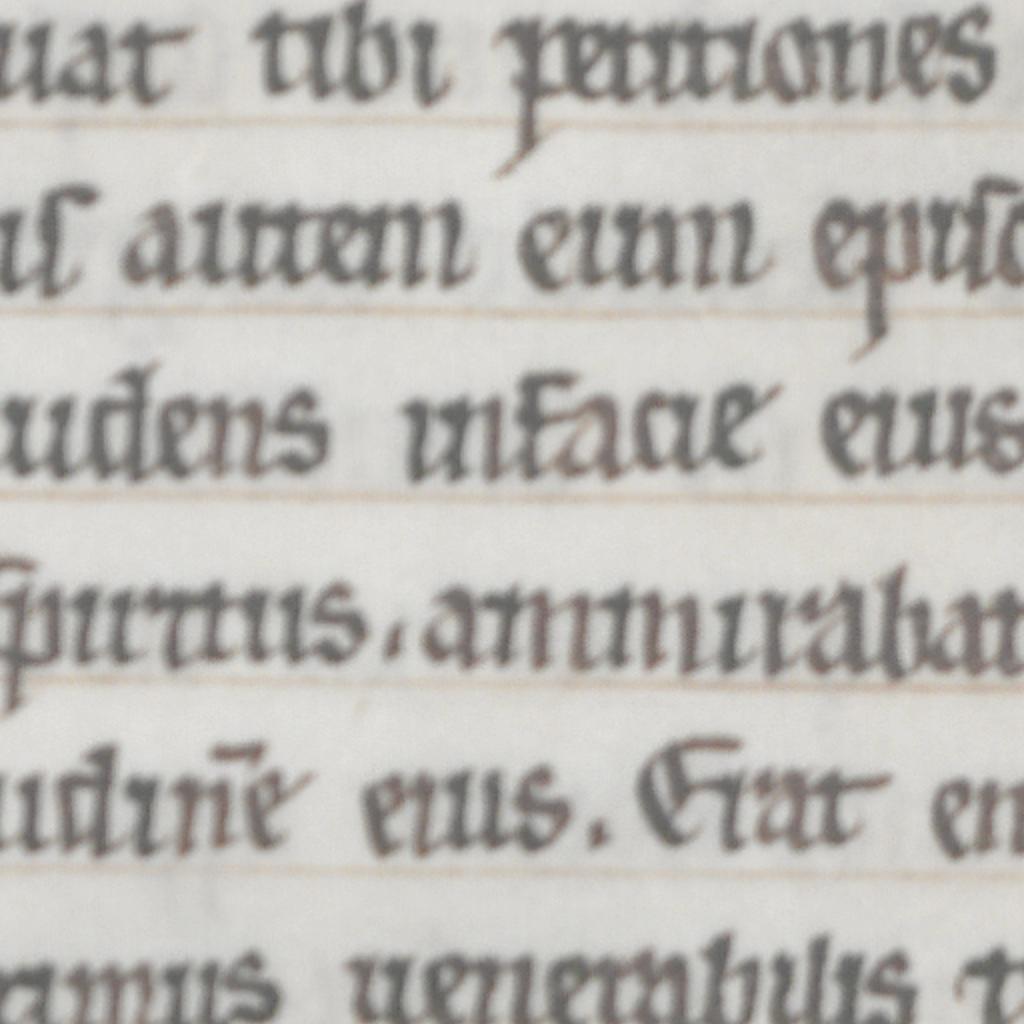 uat tibi petitiones
us autem eum episc
udens infacie eius
spiritus. ammirabat
udinē eius. Erat en
amus uenerabilis t